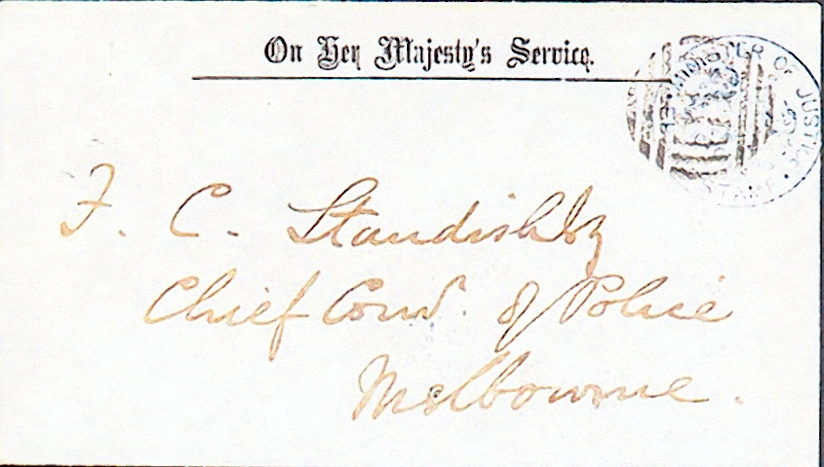 On Her Majesty's Service.
MINISTER OF JUSTICE
STAMP
F. C. Standish Esq
Chief Com. of Police
Melbourne.